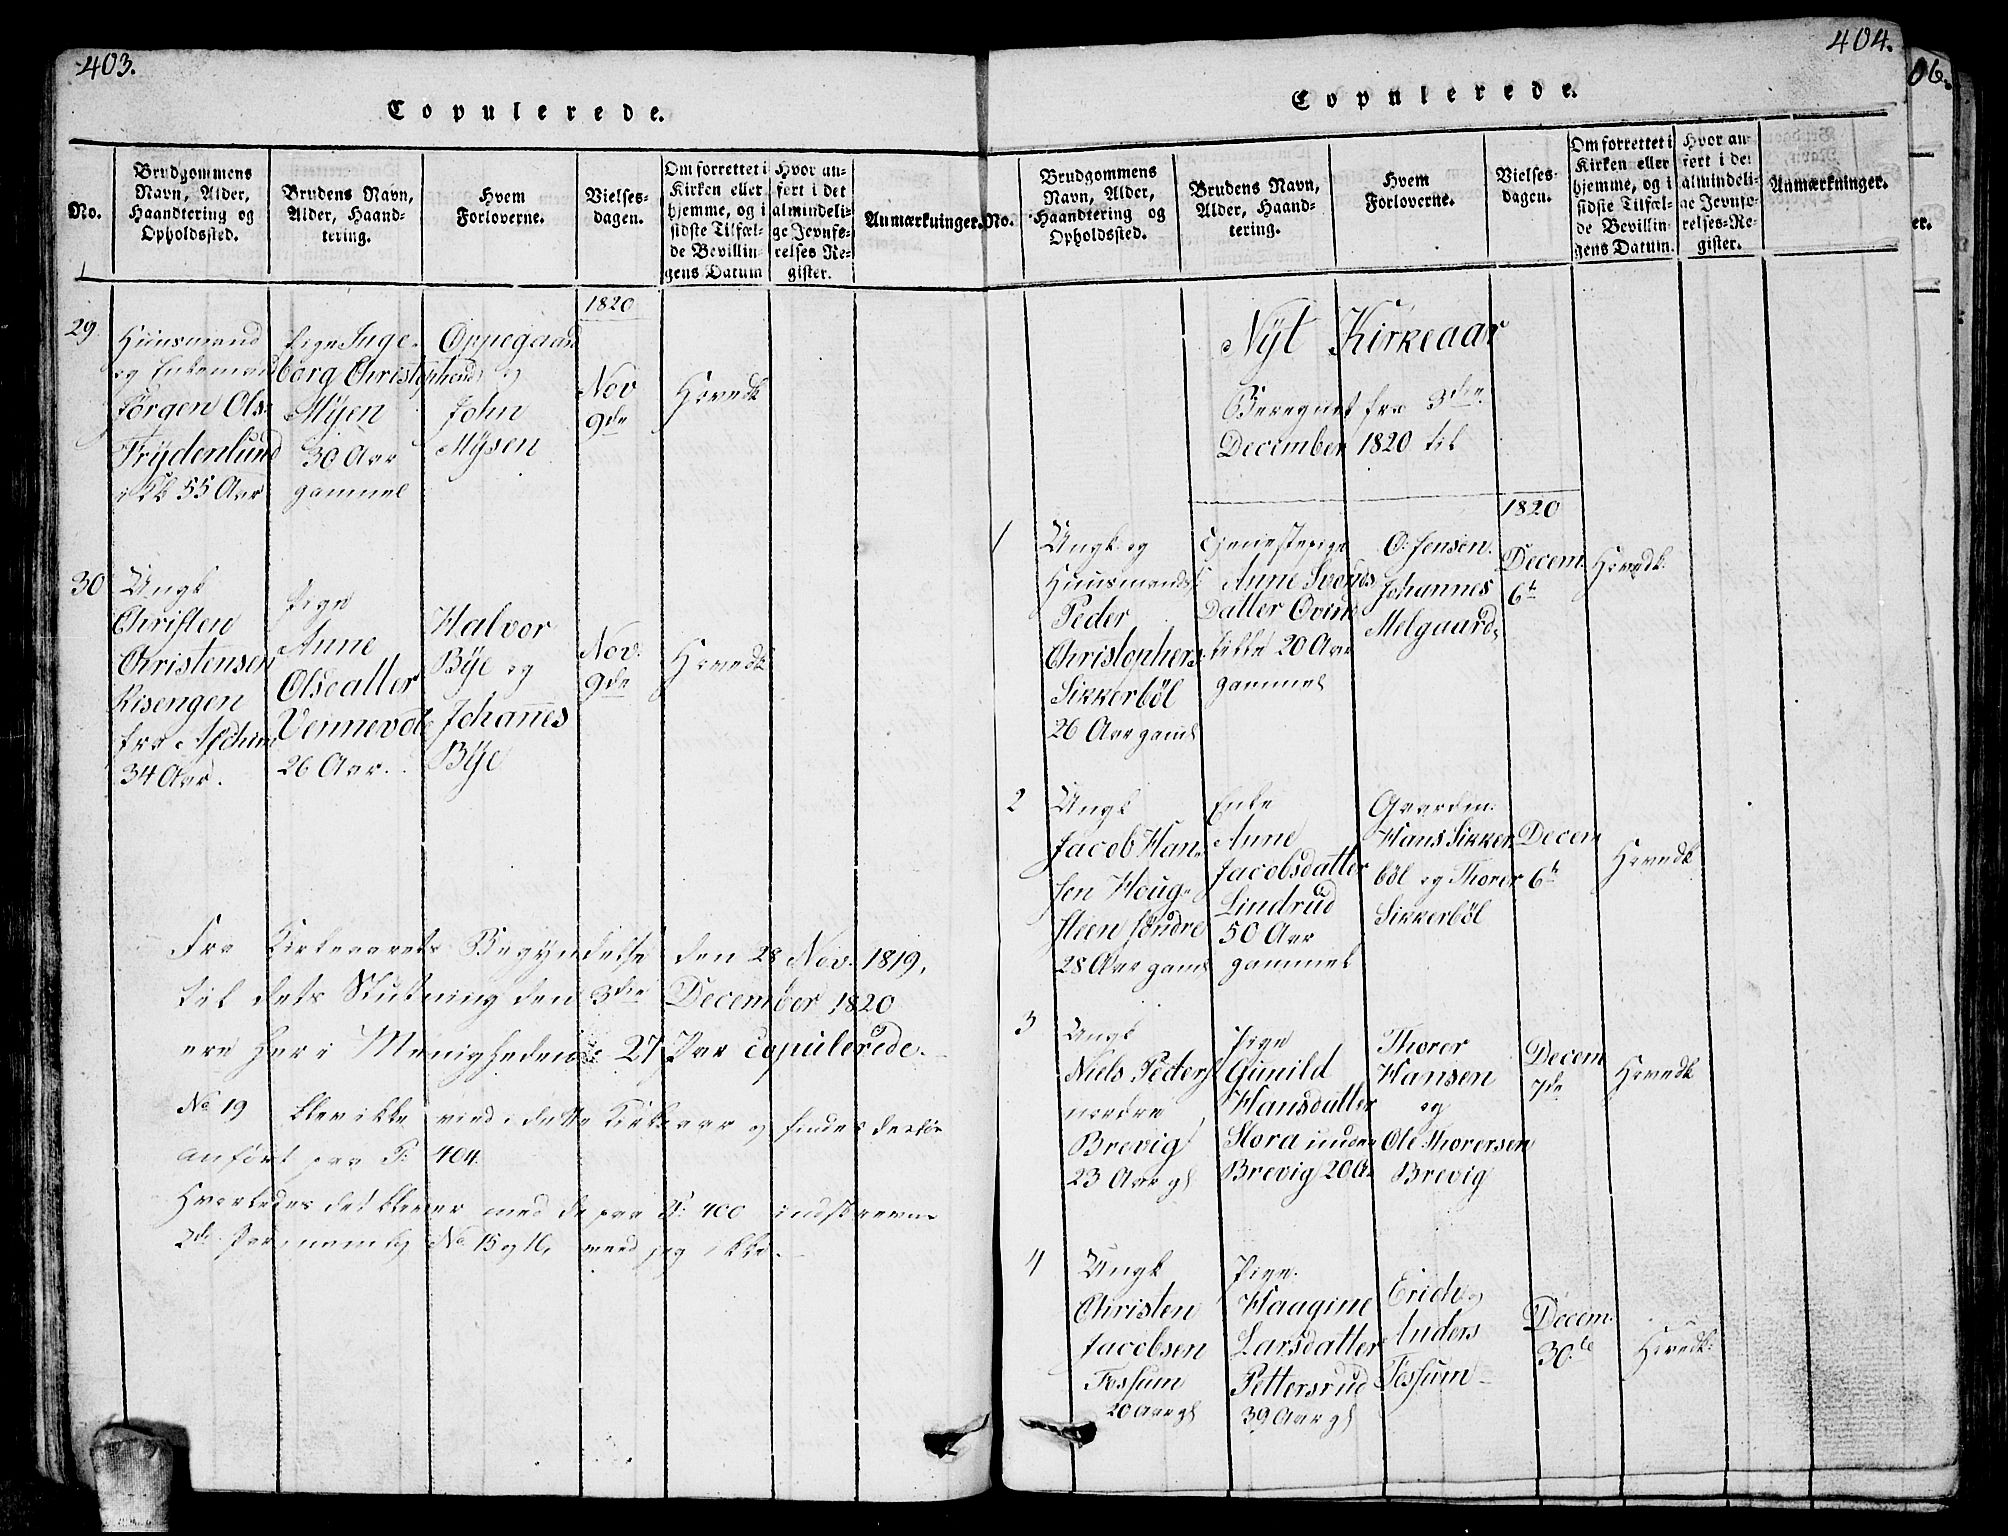 403.
Copulerede.
No.
Brudgommens
Navn, Alder,
Haandtering og
Opholdssted.
Brudens Navn,
Alder, Haand-
tering.
Hvem
Forloverne.
Vielses-
dagen.
Om forrettet i
Kirken eller
hjemme, og i
sidste Tilfæl-
de Bevillin-
gens Datum
Hvor an-
ført i det
almindeli-
ge Jevnfø-
relses Re-
gister.
Anmærkninger.
1820
29
Huusmand
og Enkemand
Jørgen Ols:
Frydenlund
55 Aar
Pige Inge-
borg Christophersd
Mysen
30 Aar
gammel
Oppegaard
og
John
Mysen
Nov
9de
Hovedk
30
Ungk
Christen
Christensen
Risengen
fra Aschim
34 Aar.
Pige
Anne
Olsdatter
Vennevol
26 Aar.
Halvor
Bye og
Johannes
Bye
Nov.
9de
Hovedk
Fra Kirkeaarets Begyndelse den 28 Nov. 1819,
til dets Slutning den 3die December 1820
ere her i Menigheden 27 Par copulerede.
No 19 blev ikke viet i dette Kirkeaar og findes derfor
anført paa P: 404.
Hvorledes det blever med de paa P: 400 indskrevne
2de Par, nemlig No 15 og 16, veed jeg ikke.
404.
Copulerede.
No.
Brudgommens
Navn, Alder,
Haandtering og
Opholdssted.
Brudens Navn,
Alder, Haand-
tering.
Hvem
Forloverne.
Vielses-
dagen.
Om forrettet i
Kirken eller
hjemme, og i
sidste Tilfæl-
de Bevillin-
gens Datum.
Hvor an-
ført i det
almindeli-
ge Jevnfø-
relses-Re-
gister.
Anmærkninger.
Nyt Kirkeaar
Beregnet fra 3die
December 1820 til
1820
1
Ungk og
Huusmands
Peder
Christophers
Sikkerböl
26 Aar gaml
Tjenestepige
Anne Svends
Datter
20 Aar
gammel
O: Jensen.
Johannes
Melgaard
Decem.
6t
Hovedk.
2
Ungk
Jacob Han
sen Houg-
steen søndre
28 Aar gaml
Enke
Anne
Jacobsdatter
Lindrud
50 Aar
gammel
Gaardm:
Hans Sikker
böl og Thorer
Sikkerböl
Decem
6t
Hovedk
3
Ungk
Niels Peders
nordre
Brevig
23 Aar gl
Pige
Gunild
Hansdatter
Stora under
Brevig 20 A
Thorer
Hansen
og
Ole Thorersen
Brevig
Decem
7de
Hovedk
4
Ungk
Christen
Jacobsen
Fossum
20 Aar gl
Pige
Haagine
Larsdatter
Pettersrud
39 Aar gl
Erich og
Anders
Fossum
Decem.
30te
Hovedk:
06.
er.